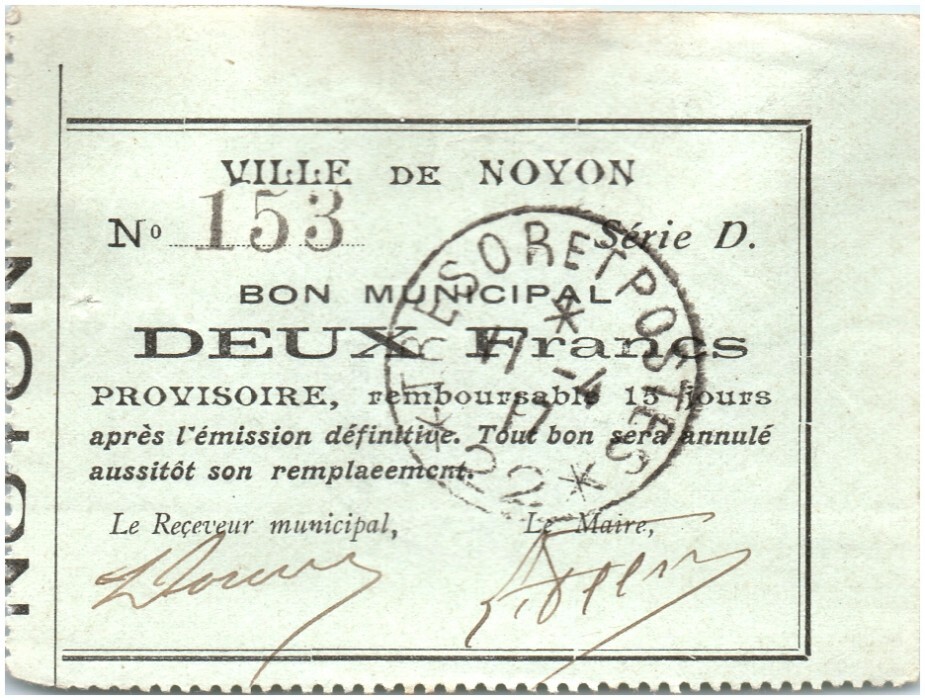 VILLE DE NOYON
Nº 153 Série D.
BON MUNICIPAL
DEUX Francs
PROVISOIRE, remboursable 15 jours
après l'émission définitive. Tout bon sera annulé
aussitôt son remplaeement.
Le Reçeveur municipal, Le Maire,
TRESOR ET POSTES
* 22 *
NOYON